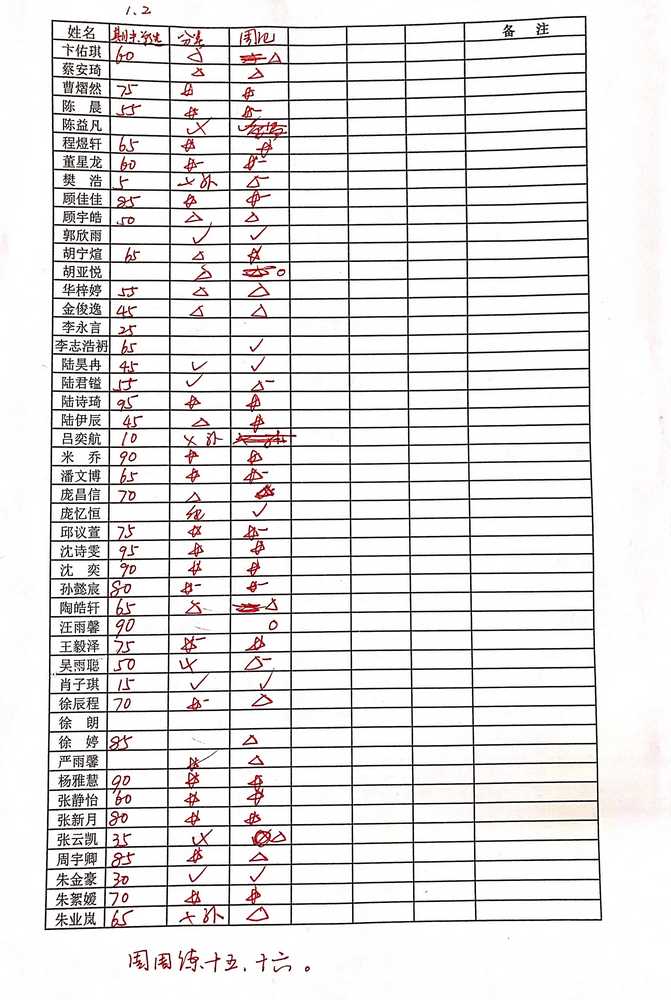 1.2
姓名 期末 分类 周记 备 注
卞佑琪 60 △ △
蔡安琦 △ △
曹熠然 75 ☆ ☆
陈 晨 55 ☆ ☆-
陈益凡 × ✓
程煜轩 65 ☆ ☆
董星龙 60 ☆- ☆-
樊 浩 5 ×补 △-
顾佳佳 85 ☆ ☆-
顾宇皓 50 △ △
郭欣雨 ✓ ✓
胡宁煊 65 △ ☆
胡亚悦 △ 0
华梓婷 55 △ △
金俊逸 45 △ △
李永言 25
李志浩礽 65 ✓
陆昊冉 45 ✓ ✓
陆君镒 55 ✓ △-
陆诗琦 95 ☆ ☆
陆伊辰 45 △ ☆
吕奕航 10 ×补
米 乔 90 ☆ ☆
潘文博 65 ☆ ☆-
庞昌信 70 △
庞忆恒 ✓
邱议萱 75 ☆ ☆-
沈诗雯 95 ☆ ☆
沈 奕 90 ☆ ☆
孙懿宸 80 ☆- ☆-
陶皓轩 65 △ △
汪雨馨 90 0
王毅泽 75 ☆- ☆
吴雨聪 50 × △-
肖子琪 15 ✓ ✓
徐辰程 70 ☆- △
徐 朗
徐 婷 85 △
严雨馨 ☆ △
杨雅慧 90 ☆ ☆
张静怡 60 ☆ ☆
张新月 80 ☆ ☆
张云凯 35 × △
周宇卿 85 ☆ △
朱金豪 30 ✓ ✓
朱絮媛 70 ☆ ☆
朱业岚 65 ×补 △
周周练十五、十六。